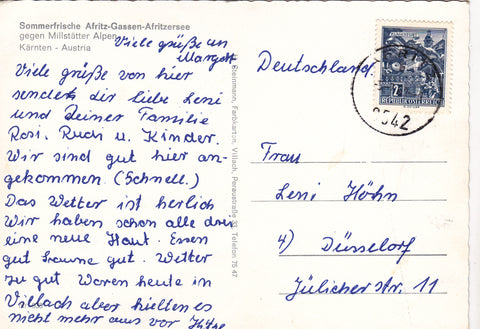 Sommerfrische Afritz-Gassen-Afritzersee
gegen Millstätter Alpen
Kärnten - Austria
Viele grüße an
Margott
Viele grüße von hier
sendet dir liebe Leni
und Deiner Familie
Rosi, Rudi u. Kinder.
Wir sind gut hier an-
gekommen. (Schnell.)
Das Wetter ist herlich
Wir haben schon alle drei
eine neue Haut. Essen
gut Laune gut. Wetter
zu gut Waren heute in
Villach aber hielten es
nicht mehr aus vor Hitze
Steinmann, Farbkarten, Villach, Peraustraße 33, Telefon 75 47
Deutschland
KLAGENFURT
2
REPUBLIK ÖSTERREICH
9542
Frau
Leni Höhn
4) Düsseldorf
Jülicher str. 11